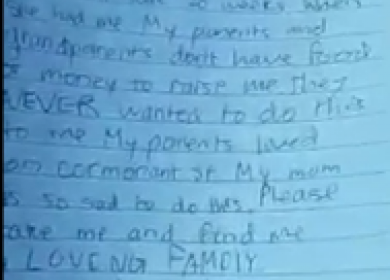 she had me My parents and
grandparents don't have food
or money to raise me They
NEVER wanted to do this
to me My parents lived
on cormorant st My mom
is so sad to do this. Please
take me and find me
A LOVING FAMELY